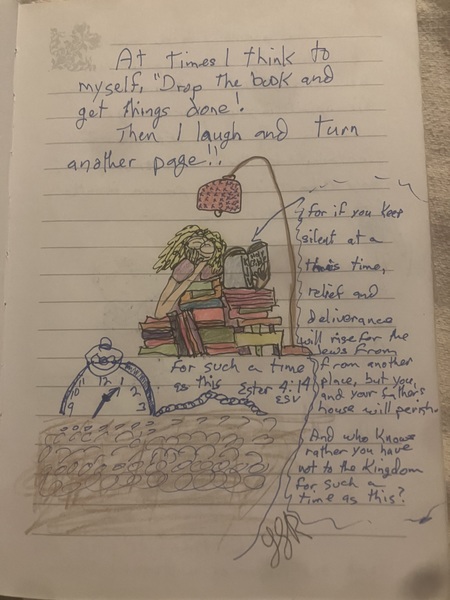 At times I think to
myself, "Drop the book and
get things done!
Then I laugh and turn
another page!!
for if you keep
silent at a
time,
relief and
deliverance
will rise for the
Jews from
from another
place, but you
and your father's
house will perish.
And who knows
rather you have
not to the Kingdom
for such a
time as this?
For such a time
as this Ester 4:14
ESV
9 10 11 12 1 2 3